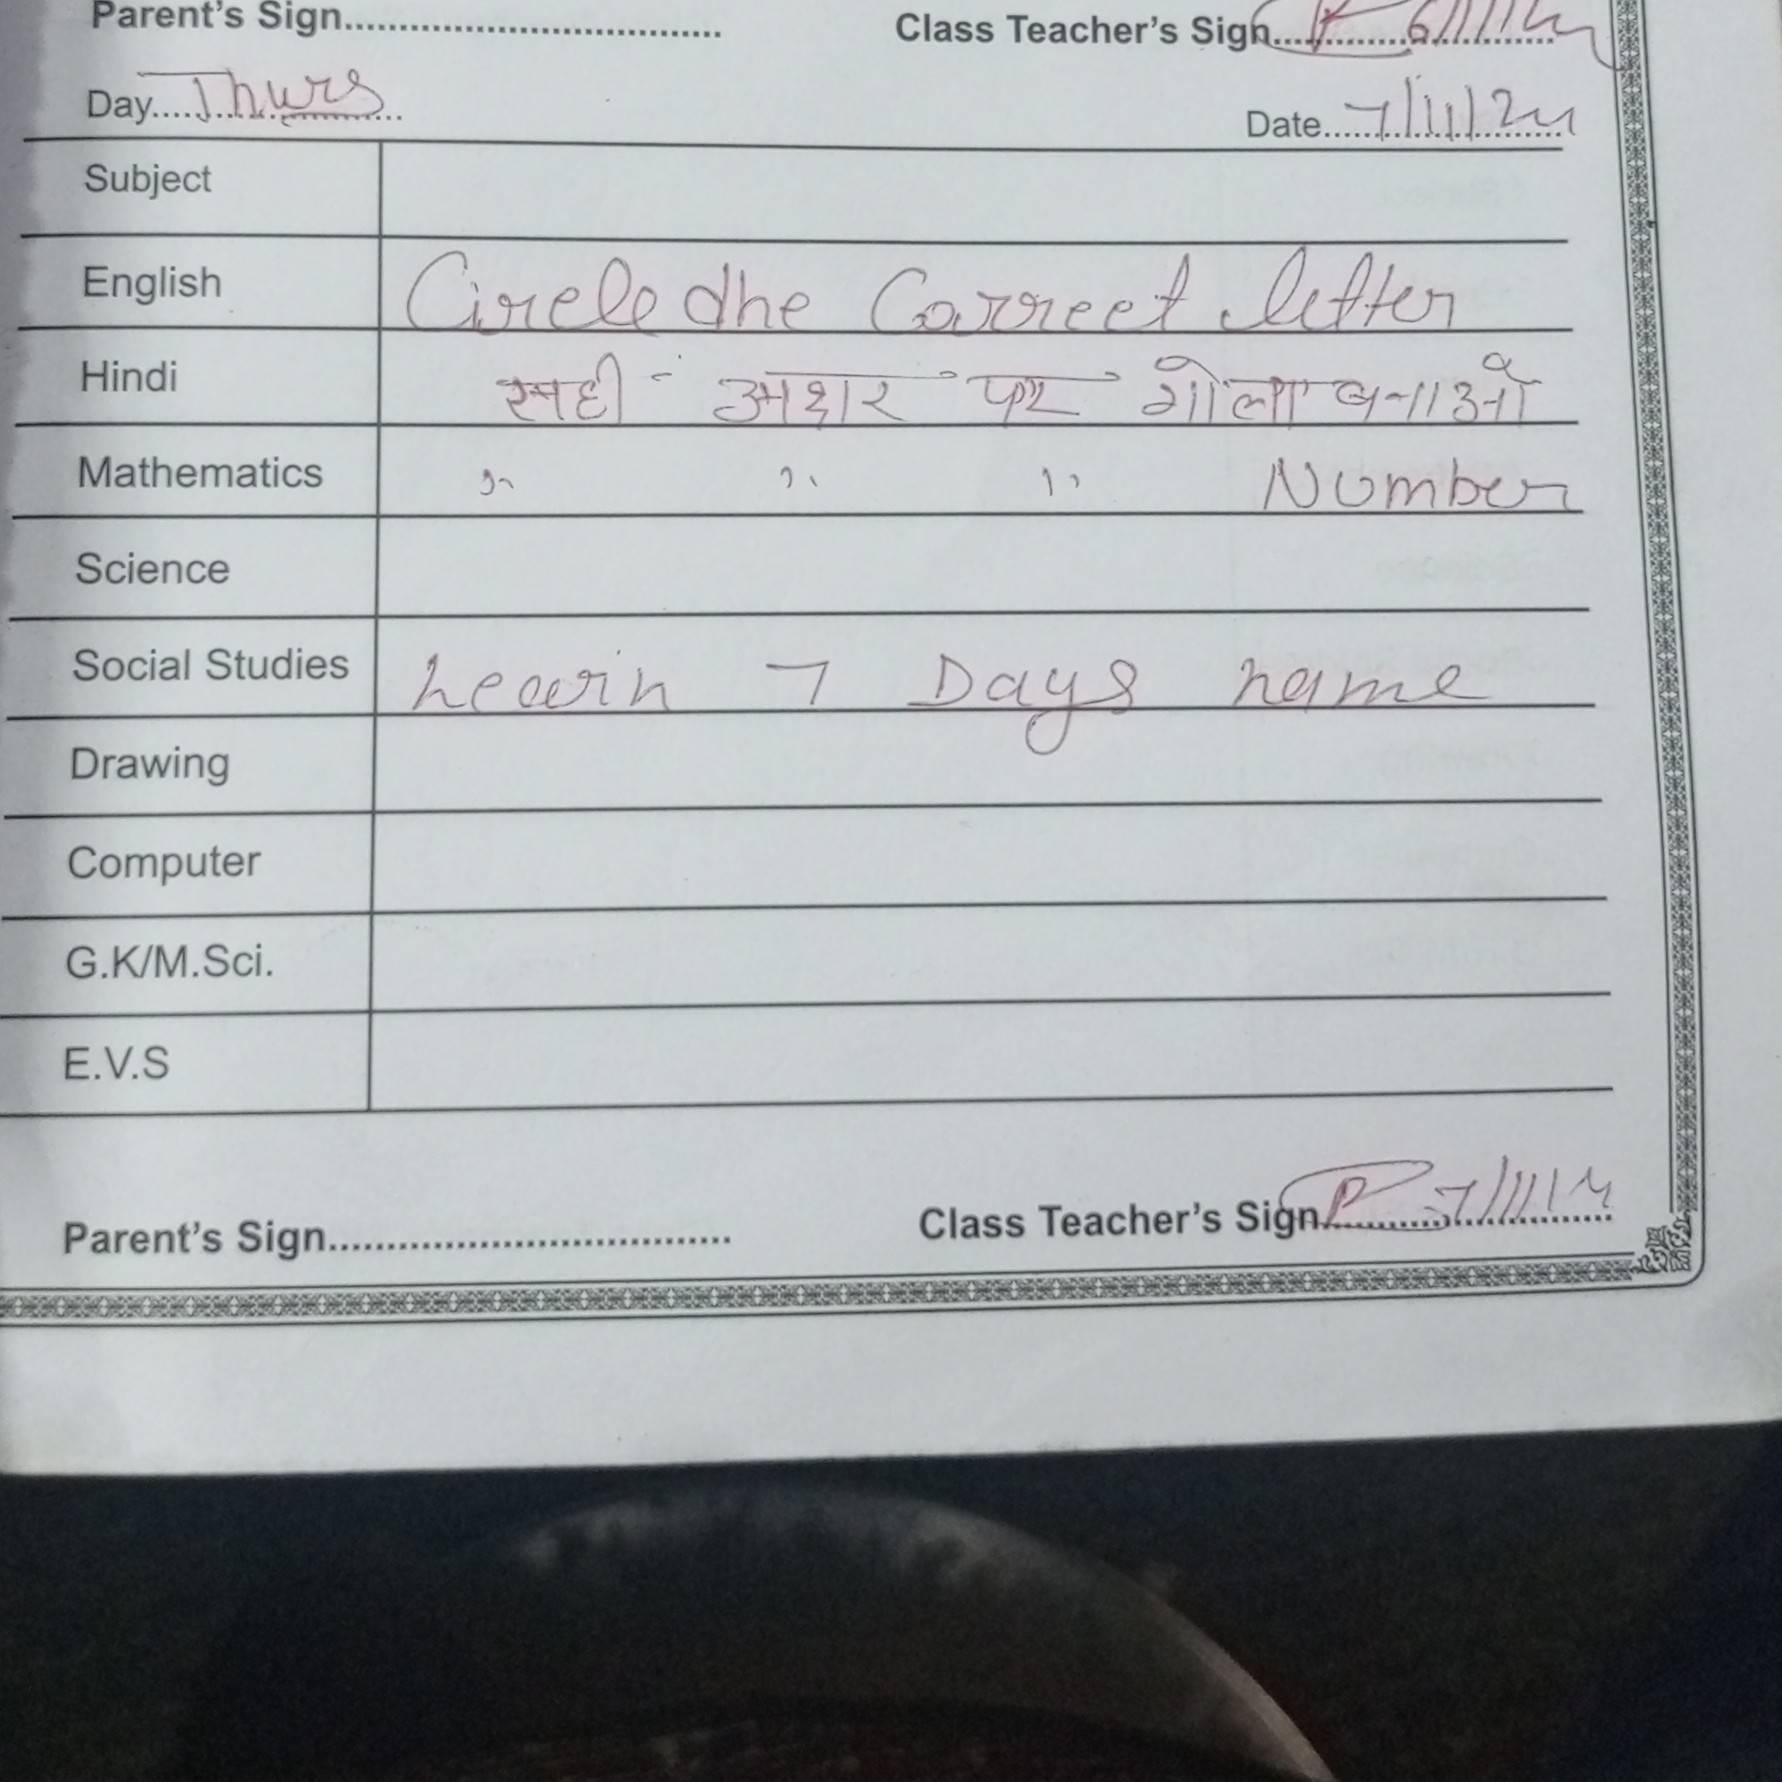 Parent's Sign....................................
Class Teacher's Sign.............................. 6/11/24
Day....Thurs....
Date....7/11/24....
Subject
English Circle dhe Correct letter
Hindi सही अक्षर पर गोला बनाओ
Mathematics " " " Number
Science
Social Studies Learn 7 Days name
Drawing
Computer
G.K/M.Sci.
E.V.S
Parent's Sign....................................
Class Teacher's Sign.............................. 7/11/24